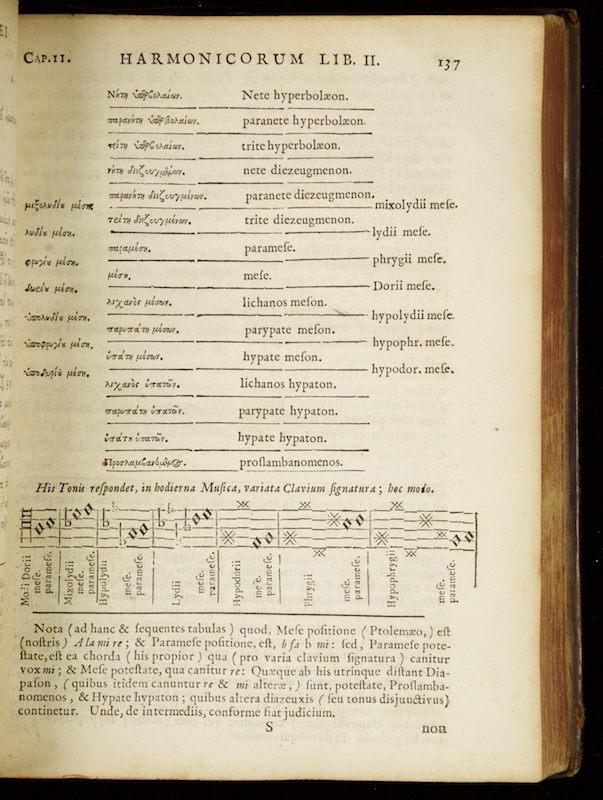 CAP.II. HARMONICORUM LIB. II. 137
Νήτη ὑπερβολαίων. Nete hyperbolæon.
παρανήτη ὑπερβολαίων. paranete hyperbolæon.
τρίτη ὑπερβολαίων. trite hyperbolæon.
νήτη διεζευγμένων. nete diezeugmenon.
παρανήτη διεζευγμένων. paranete diezeugmenon.
μιξολυδίυ μέση. mixolydii meſe.
τρίτη διεζευγμένων. trite diezeugmenon.
λυδίυ μέση. lydii meſe.
παραμέση. parameſe.
φρυγίυ μέση. phrygii meſe.
μέση. meſe.
δωρίυ μέση. Dorii meſe.
λιχανὸς μέσων. lichanos meſon.
ὑπολυδίυ μέση. hypolydii meſe.
παρυπάτη μέσων. parypate meſon.
ὑποφρυγίυ μέση. hypophr. meſe.
ὑπάτη μέσων. hypate meſon.
ὑποδωρίυ μέση. hypodor. meſe.
λιχανὸς ὑπατῶν. lichanos hypaton.
παρυπάτη ὑπατῶν. parypate hypaton.
ὑπάτη ὑπατῶν. hypate hypaton.
Προσλαμβανόμενος. proſlambanomenos.
His Tonis reſpondet, in hodierna Muſica, variata Clavium ſignatura; hoc modo.
Modi Dorii
meſe.
parameſe.
Mixolydii
meſe.
parameſe.
Hypolydii
meſe.
parameſe.
Lydii
meſe.
parameſe.
Hypodorii
meſe.
parameſe.
Phrygii
meſe.
parameſe.
Hypophrygii
meſe.
parameſe.
Nota (ad hanc & ſequentes tabulas) quod, Meſe poſitione (Ptolemæo,) eſt
(noſtris) A la mi re; & Parameſe poſitione, eſt, b fa b mi: ſed, Parameſe pote-
ſtate, eſt ea chorda (his propior) qua (pro varia clavium ſignatura) canitur
vox mi; & Meſe poteſtate, qua canitur re: Quæque ab his utrinque diſtant Dia-
paſon, (quibus itidem canuntur re & mi alteræ,) ſunt, poteſtate, Proſlamba-
nomenos, & Hypate hypaton; quibus altera diazeuxis (ſeu tonus disjunctivus)
continetur. Unde, de intermediis, conforme fiat judicium.
S non